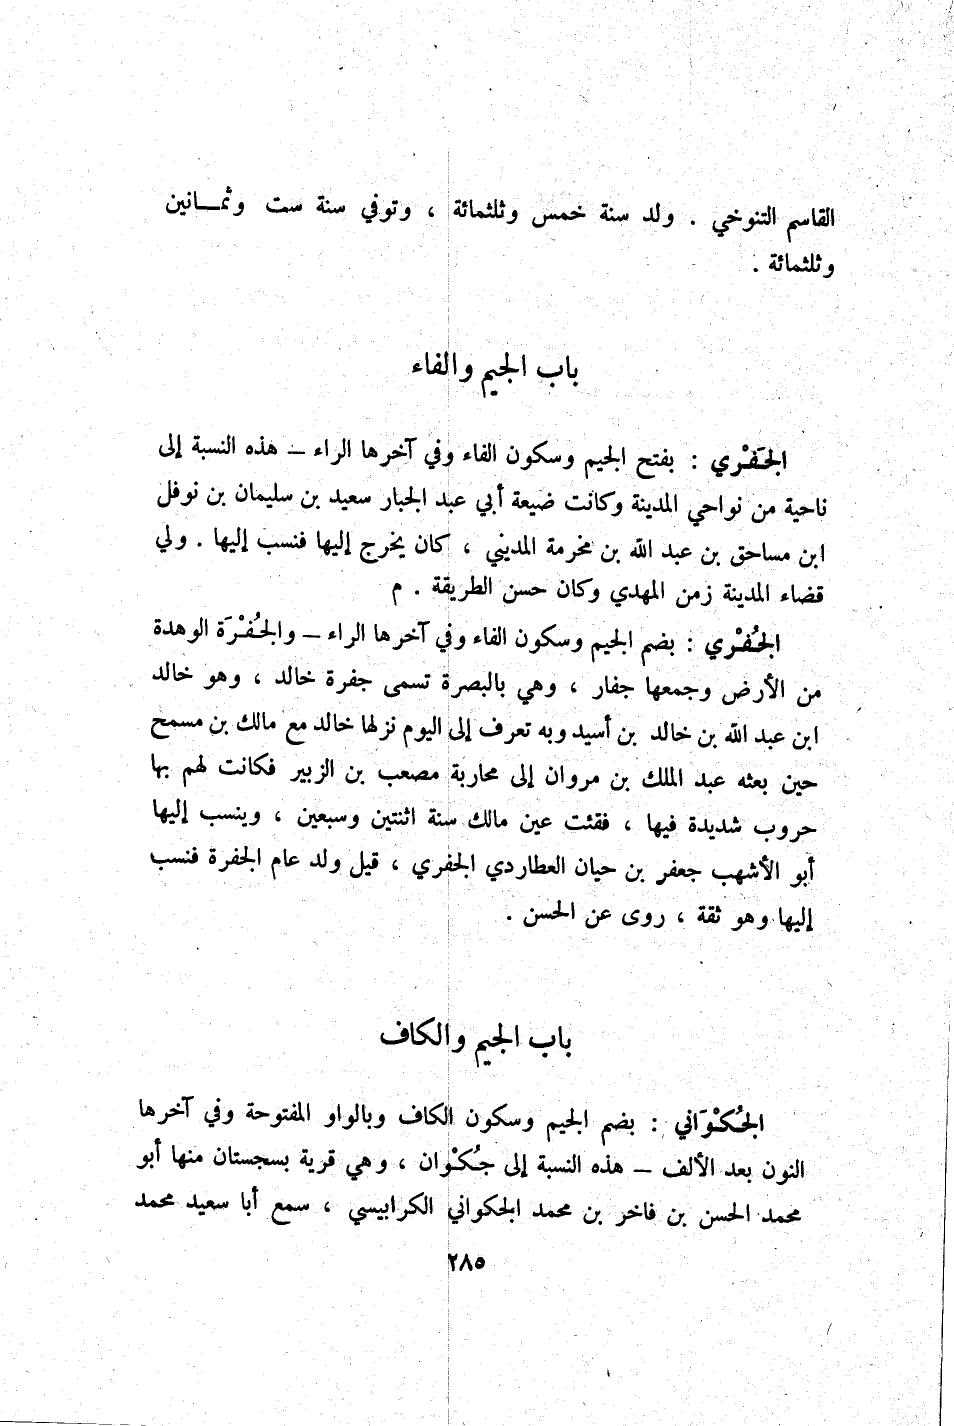 القاسم التنوخي . ولد سنة خمس وثلثمائة ، وتوفي سنة ست وثمـــانين
وثلثمائة .
باب الجيم والفاء
الجَفْري : بفتح الجيم وسكون الفاء وفي آخرها الراء – هذه النسبة إلى
ناحية من نواحي المدينة وكانت ضيعة أبي عبد الجبار سعيد بن سليمان بن نوفل
ابن مساحق بن عبد الله بن مخرمة المديني ، كان يخرج إليها فنسب إليها . ولي
قضاء المدينة زمن المهدي وكان حسن الطريقة . م
الجُفْري : بضم الجيم وسكون الفاء وفي آخرها الراء – والجُفْرَة الوهدة
من الأرض وجمعها جفار ، وهي بالبصرة تسمى جفرة خالد ، وهو خالد
ابن عبد الله بن خالد بن أسيد وبه تعرف إلى اليوم نزلها خالد مع مالك بن مسمح
حين بعثه عبد الملك بن مروان إلى محاربة مصعب بن الزبير فكانت لهم بها
حروب شديدة فيها ، فقئت عين مالك سنة اثنتين وسبعين ، وينسب إليها
أبو الأشهب جعفر بن حيان العطاردي الجفري ، قيل ولد عام الجفرة فنسب
إليها وهو ثقة ، روى عن الحسن .
باب الجيم والكاف
الجُكْوَاني : بضم الجيم وسكون الكاف وبالواو المفتوحة وفي آخرها
النون بعد الألف – هذه النسبة إلى جُكْوان ، وهي قرية بسجستان منها أبو
محمد الحسن بن فاخر بن محمد الجكواني الكرابيسي ، سمع أبا سعيد محمد
٢٨٥